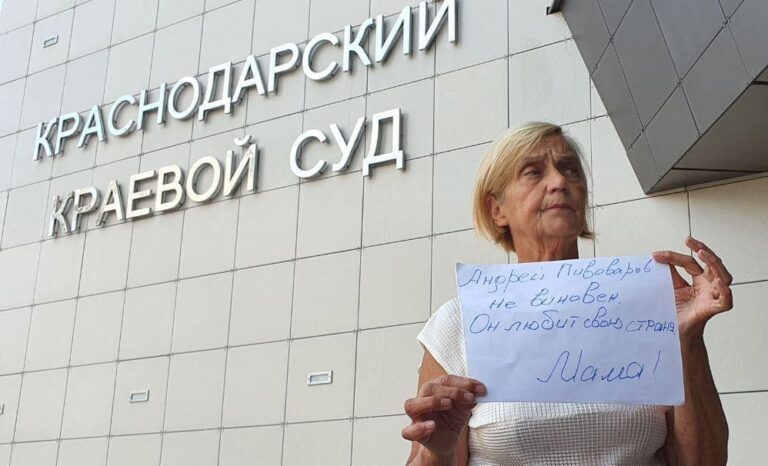 КРАСНОДАРСКИЙ
КРАЕВОЙ СУД
Андрей Пивоваров
не виновен.
Он любит свою страну.
Мама!